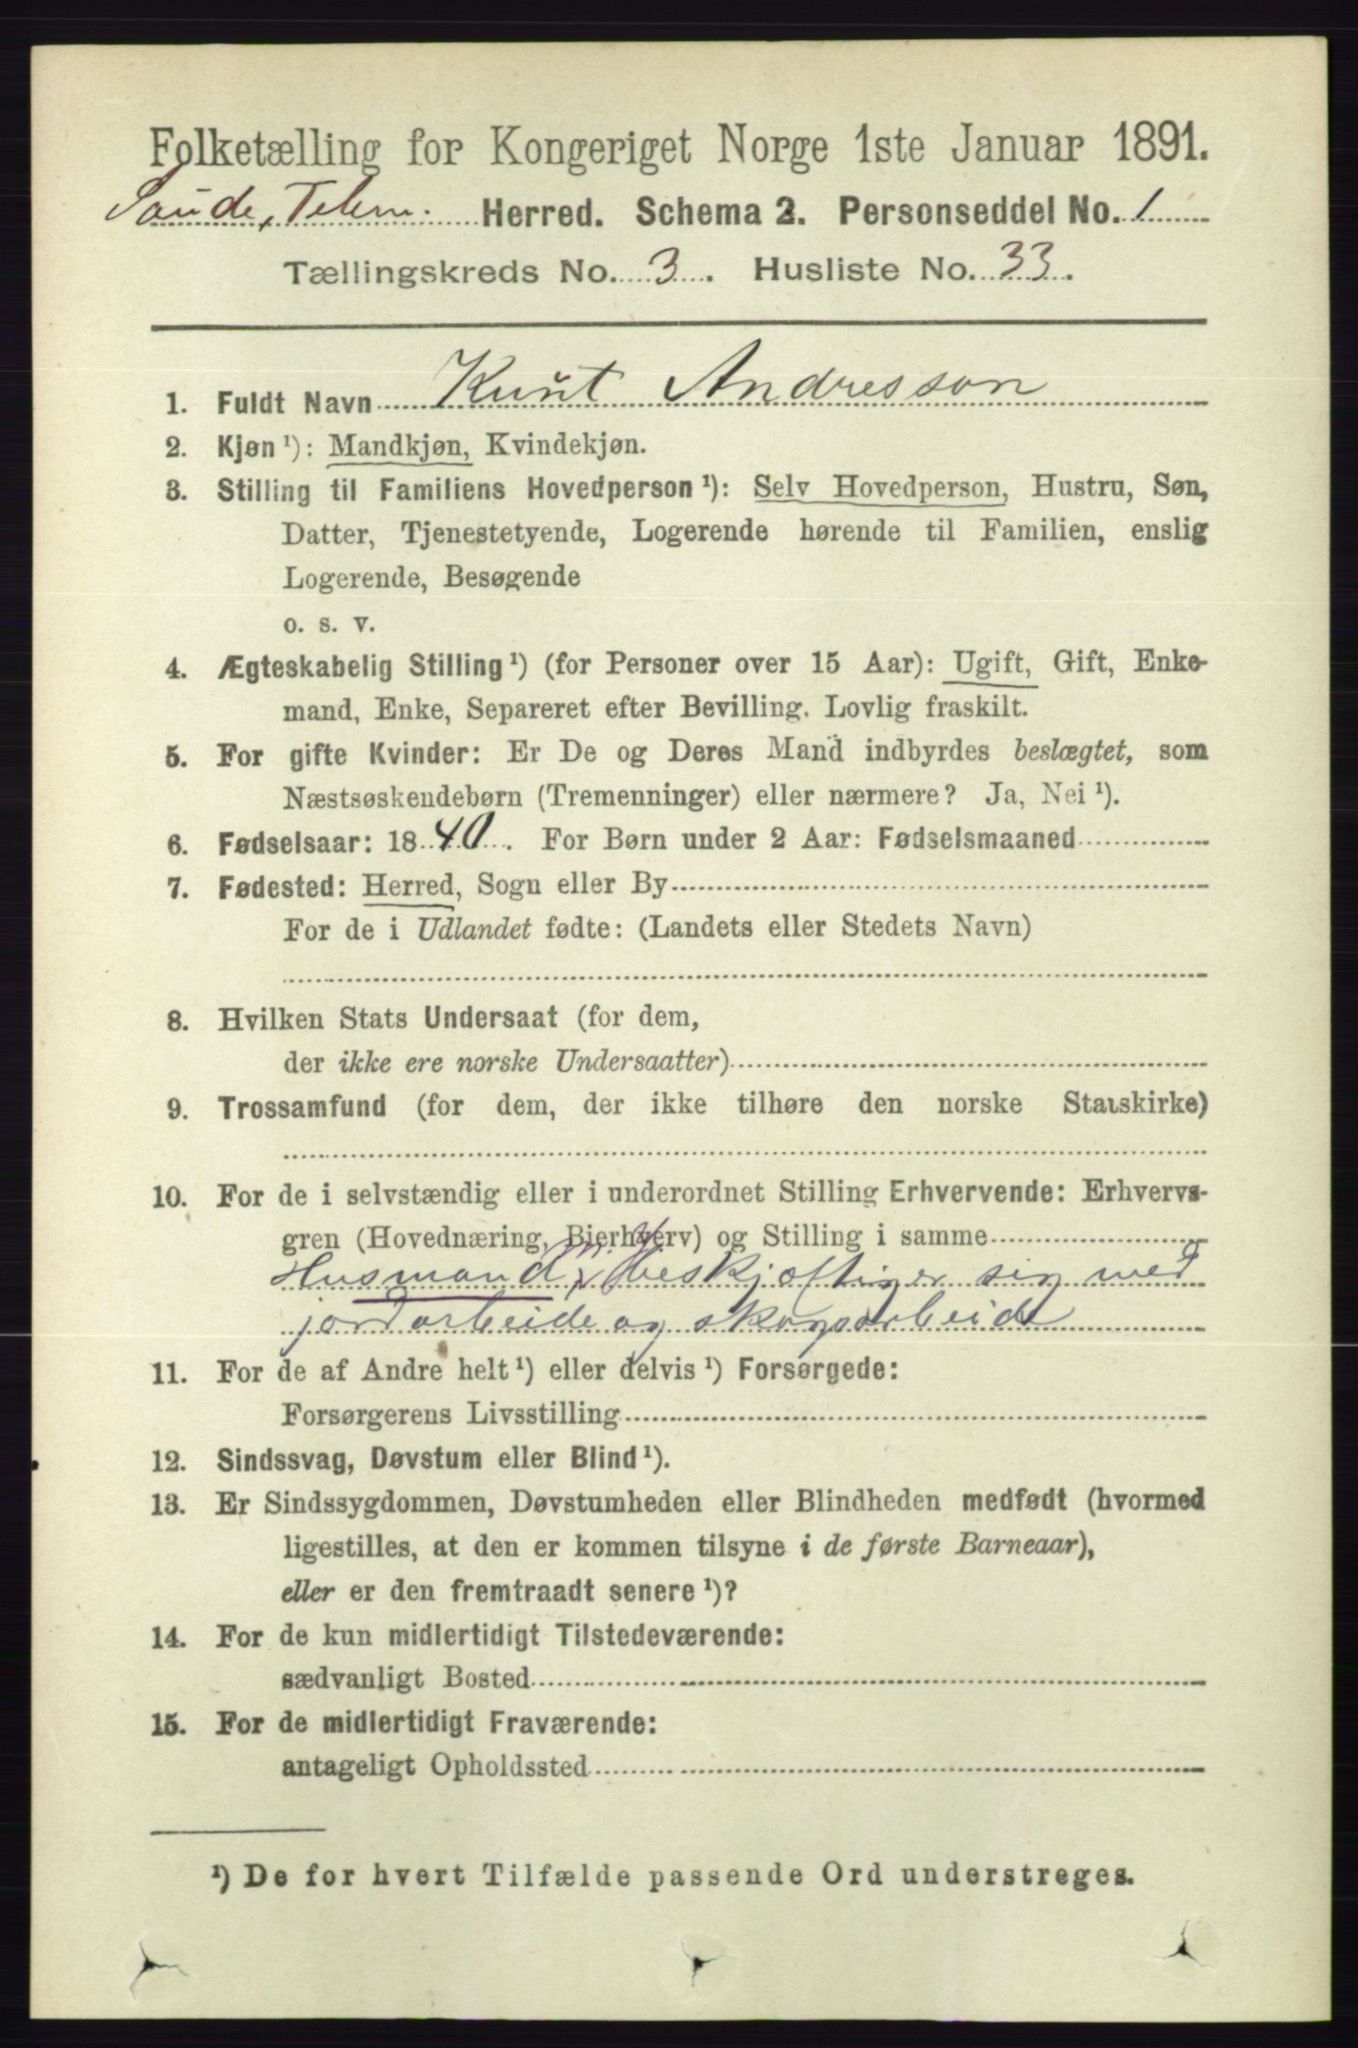 Folketælling for Kongeriget Norge 1ste Januar 1891.
Saude, Telem. Herred. Schema 2. Personseddel No. 1
Tællingskreds No. 3. Husliste No. 33.
1. Fuldt Navn Knut Andresson
2. Kjøn ¹): Mandkjøn, Kvindekjøn.
3. Stilling til Familiens Hovedperson ¹): Selv Hovedperson, Hustru, Søn,
Datter, Tjenestetyende, Logerende hørende til Familien, enslig
Logerende, Besøgende
o. s. v.
4. Ægteskabelig Stilling ¹) (for Personer over 15 Aar): Ugift, Gift, Enke-
mand, Enke, Separeret efter Bevilling. Lovlig fraskilt.
5. For gifte Kvinder: Er De og Deres Mand indbyrdes beslægtet, som
Næstsøskendebørn (Tremenninger) eller nærmere? Ja, Nei ¹).
6. Fødselsaar: 1840. For Børn under 2 Aar: Fødselsmaaned
7. Fødested: Herred, Sogn eller By
For de i Udlandet fødte: (Landets eller Stedets Navn)
8. Hvilken Stats Undersaat (for dem,
der ikke ere norske Undersaatter)
9. Trossamfund (for dem, der ikke tilhøre den norske Statskirke)
10. For de i selvstændig eller i underordnet Stilling Erhvervende: Erhvervs-
gren (Hovednæring, Bierhverv) og Stilling i samme
Husmand, beskjæftiger sig med
jordarbeide og skogsarbeide
11. For de af Andre helt ¹) eller delvis ¹) Forsørgede:
Forsørgerens Livsstilling
12. Sindssvag, Døvstum eller Blind ¹).
13. Er Sindssygdommen, Døvstumheden eller Blindheden medfødt (hvormed
ligestilles, at den er kommen tilsyne i de første Barneaar),
eller er den fremtraadt senere ¹)?
14. For de kun midlertidigt Tilstedeværende:
sædvanligt Bosted
15. For de midlertidigt Fraværende:
antageligt Opholdssted
¹) De for hvert Tilfælde passende Ord understreges.